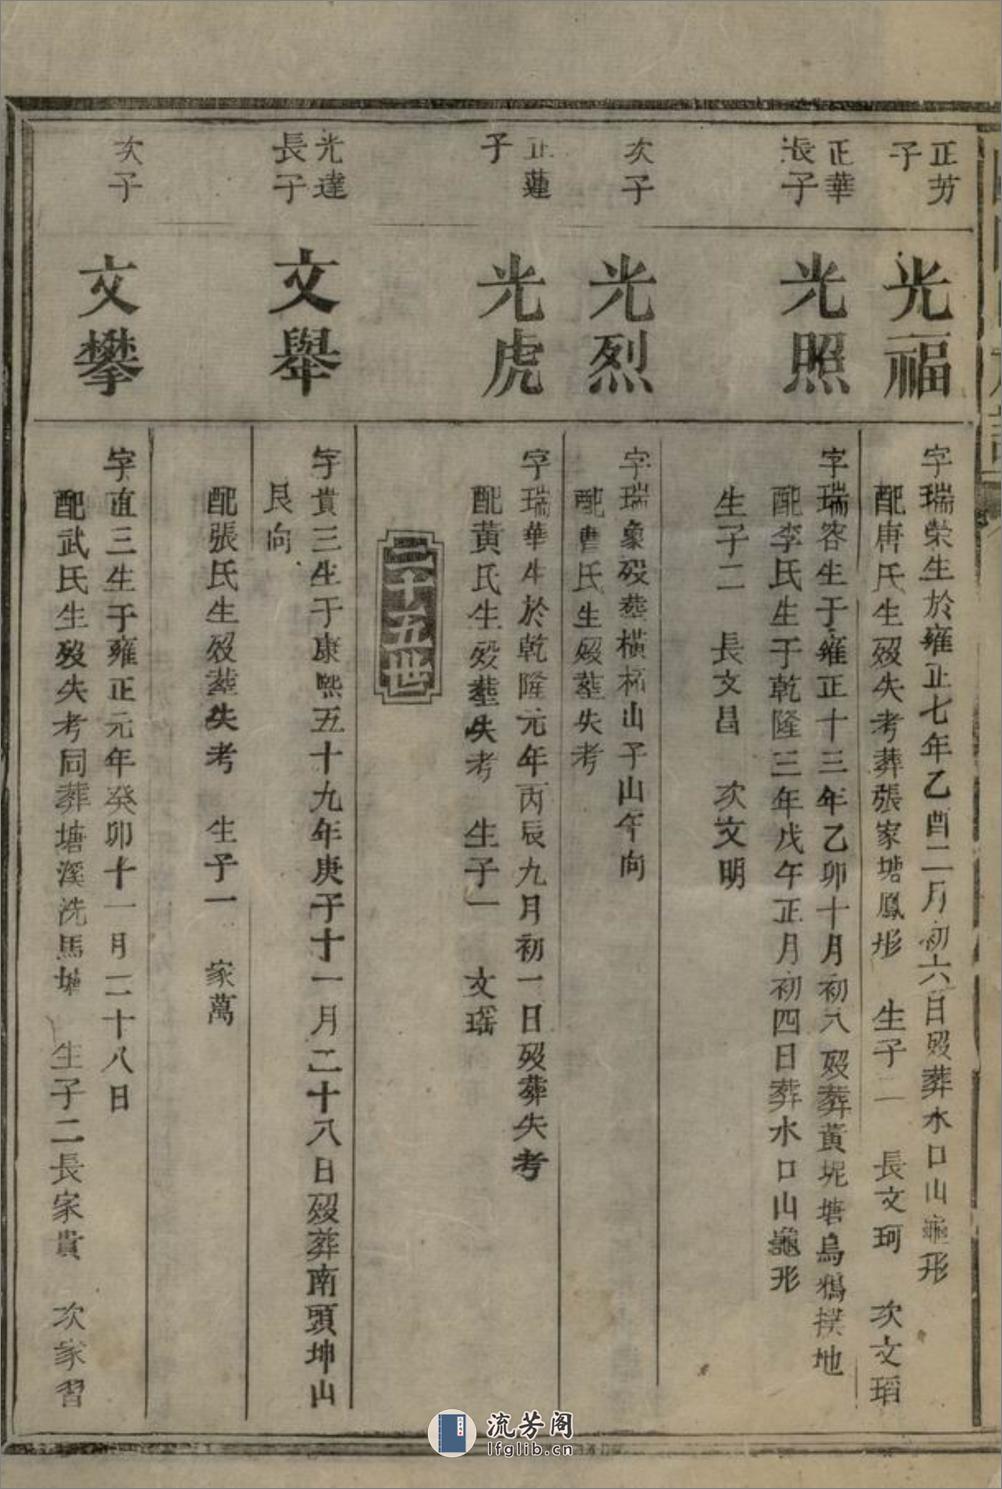 正芳
子
光福
字瑞荣生於雍正七年乙酉二月初六日歿葬水口山龜形
配唐氏生歿失考葬張家塘鳳形 生子二 長文珂 次文瑫
正華
長子
光照
字瑞容生于雍正十三年乙卯十月初八歿葬黃坭塘烏鴉撲地
配李氏生于乾隆三年戊午正月初四日葬水口山龜形
生子二 長文昌 次文明
次子
光烈
字瑞象歿葬橫柹山子山午向
配曹氏生歿葬失考
正蓮
子
光虎
字瑞華生於乾隆元年丙辰九月初一日歿葬失考
配黃氏生歿葬失考 生子一 文瑶
二十五世
光達
長子
文舉
字貴三生于康熙五十九年庚子十一月二十八日歿葬南頭坤山
艮向
配張氏生歿葬失考 生子一 家萬
次子
文攀
字直三生于雍正元年癸卯十一月二十八日
配武氏生歿失考同葬塘溪洗馬塘 生子二長家貴 次家習
流芳阁
lfglib.cn